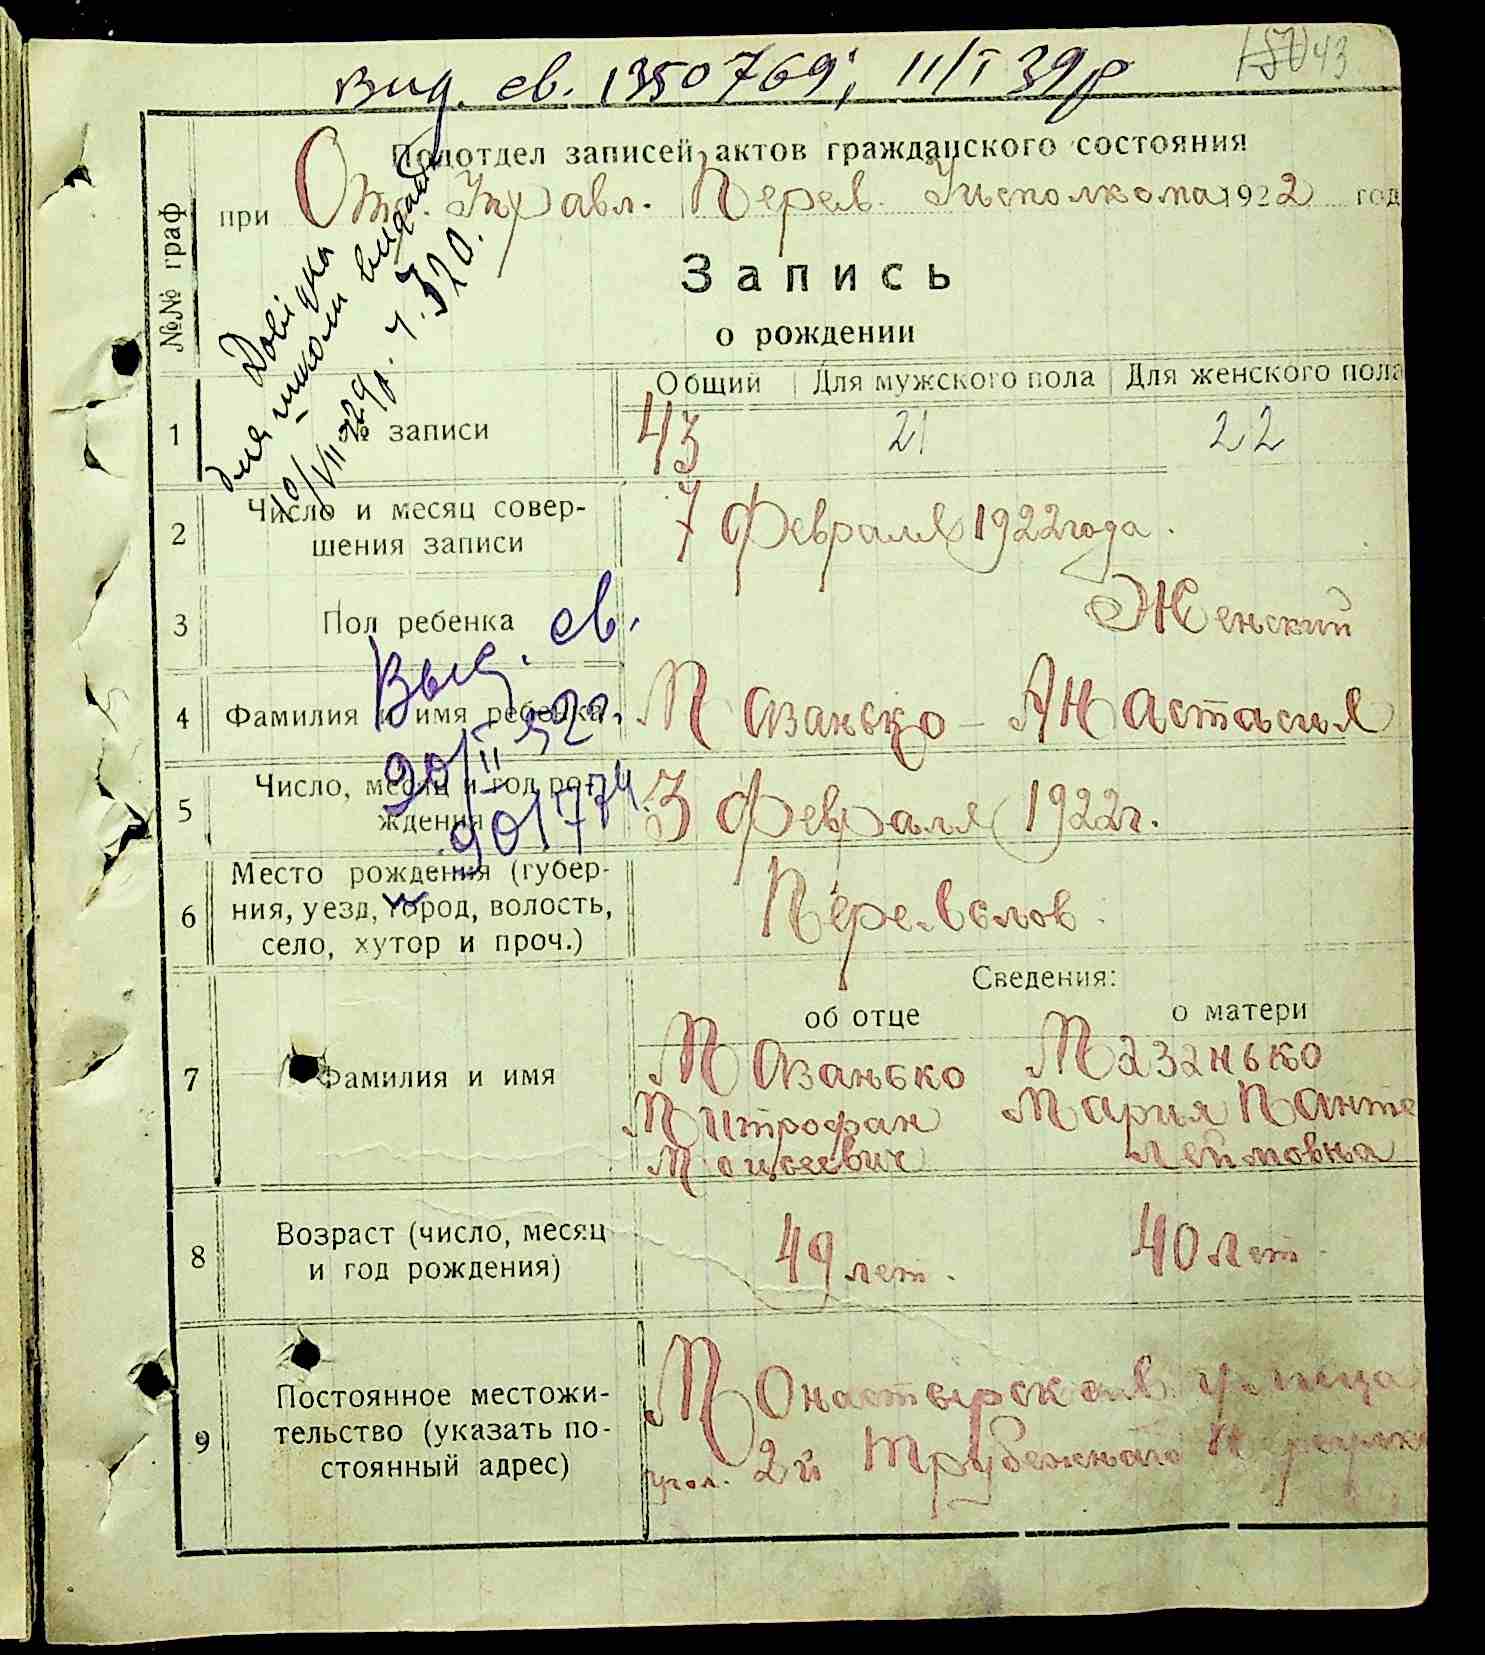 43
вид. св. 1350769; 11/I 39р
Подотдел записей актов гражданского состояния
при Отд. Управл. Перев. Исполкома 1922 год
Довідка
для школи видана
10/VII-29р. ч. 520.
№№ граф
Запись
о рождении
Общий Для мужского пола Для женского пола
1 № записи 43 21 22
2 Число и месяц совер-
шения записи
7 Февраля 1922 года.
3 Пол ребенка Женский
Выд. св.
4 Фамилия и имя ребенка Мазанько Анастасия
5 Число, месяц и год ро-
ждения
3 Февраля 1922г.
901774
6 Место рождения (губер-
ния, уезд, город, волость,
село, хутор и проч.)
Переяслов
Сведения:
об отце о матери
7 Фамилия и имя
Мазанько Мазанько
Митрофан Мария Панте
Моисеевич леймовна
8 Возраст (число, месяц
и год рождения)
49 лет. 40 лет
9 Постоянное местожи-
тельство (указать по-
стоянный адрес)
Монастырская улица
угол. 2й Трубежного Переулка